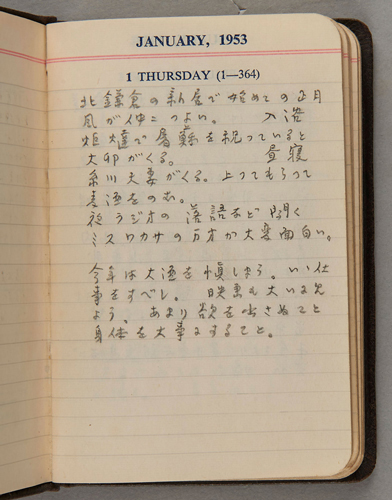 JANUARY, 1953
1 THURSDAY (1—364)
北鎌倉の新居で始めての正月
風が仲々つよい。 入浴
炬燵で屠蘇を祝っていると
がくる。 昼寝
夫妻がくる。上ってもらって
麦酒をのむ。
夜ラジオの落語など聞く
ミスワカサの万才が大変面白い。
今年は大酒を慎しもう。いい仕
事をすべし。 映画も大いに見
よう、あまり欲を出さぬこと
身体を大事にすること。